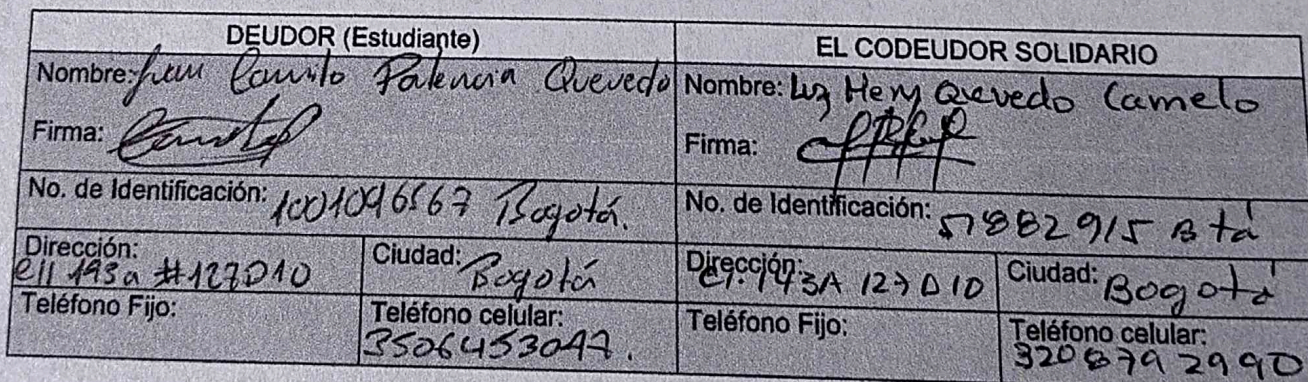 DEUDOR (Estudiante)
EL CODEUDOR SOLIDARIO
Nombre: Camilo Palencia Quevedo
Nombre: Luz Hery Quevedo Camelo
Firma:
Firma:
No. de Identificación: 1001096567 Bogotá.
No. de Identificación: 51882915 Btá
Dirección:
cll 143a #127D10
Ciudad: Bogotá
Dirección: Cl. 143A 127 D 10
Ciudad: Bogotá
Teléfono Fijo:
Teléfono celular:
Teléfono Fijo:
Teléfono celular:
3208792990